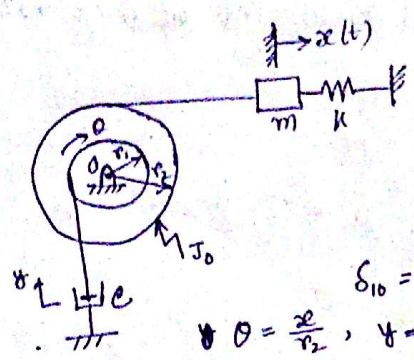 x(t)
m
k
θ
O
r₁
r₂
J₀
y
c
δ₁₀ =
θ = x/r₂ , y =